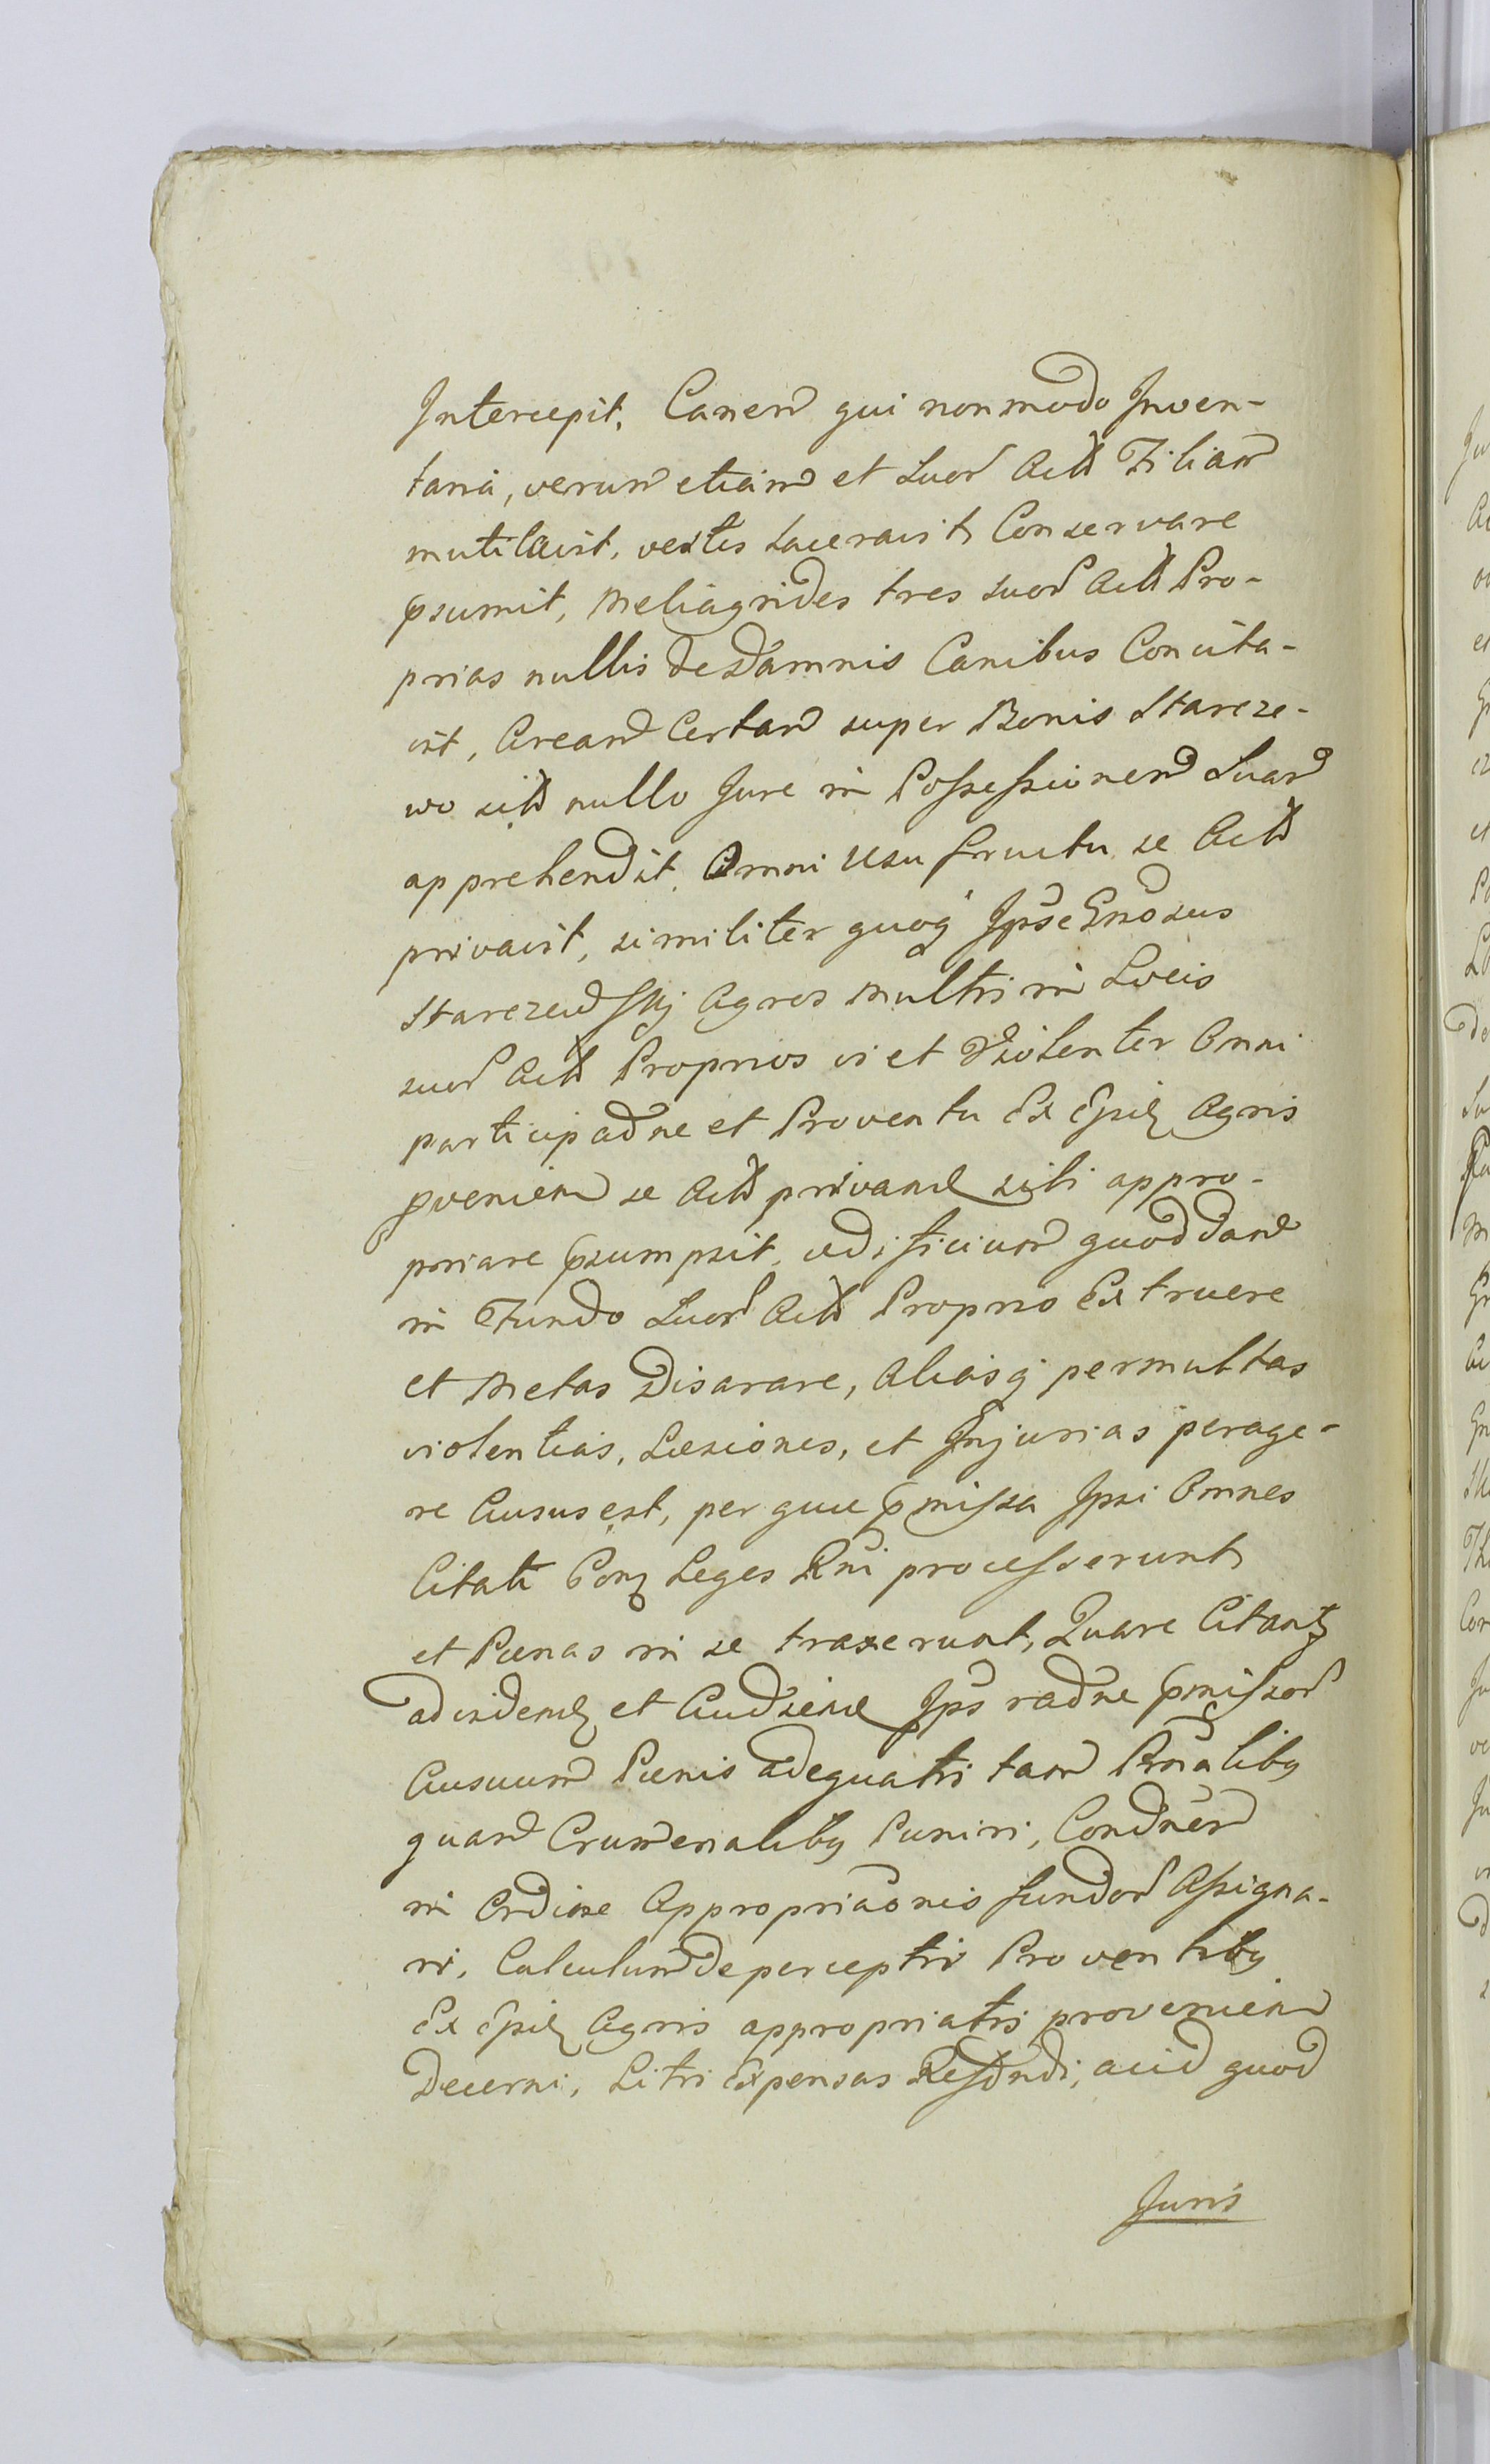 Intercepit, Canem qui non modo Inven-
taria, verum etiam et Suor Actt Filiam
mutilavit, vestes laceravit Conservare
psumit, Meliagrides tres suor Actt Pro-
prias nullis de damnis Canibus Concita-
vit, Aream Certam super Bonis Stareze-
wo sitt nullo Jure in Possessionem Suam
apprehendit, Omni Usu fructu se Actt
privavit, similiter quoq Ipse Gnosus
Starezewskj Agros Multis in Locis
suor Actt Proprios vi et Violenter Omni
participadne et Proventu Ex Epis Agris
pvenien se Actt privand sibi appro-
priare psumpsit, aedificium quoddam
in Fundo Suor Actt Proprio Extruere
et Metas Disarare, Aliasq permultas
violentias, Laesiones, et Injurias perage-
re Ausus est, per quae pmissa Ipsi Omnes
Citati Con Leges Rni processerunt
et Paenas in se traxerunt, Quare Citant
ad vidend et Audiend Ips radne pmissor
Ausuum Paenis adequatis tam Pnalibq
quam Crumenalibq Puniri, Condnem
in Ordine Appropriaonis fundor Assigna-
ri, Calculum de perceptis Proventibq
Ex Epis Agris appropriatis provenien
Decerni, Litis Expensas Refundi, acid quod
Juris